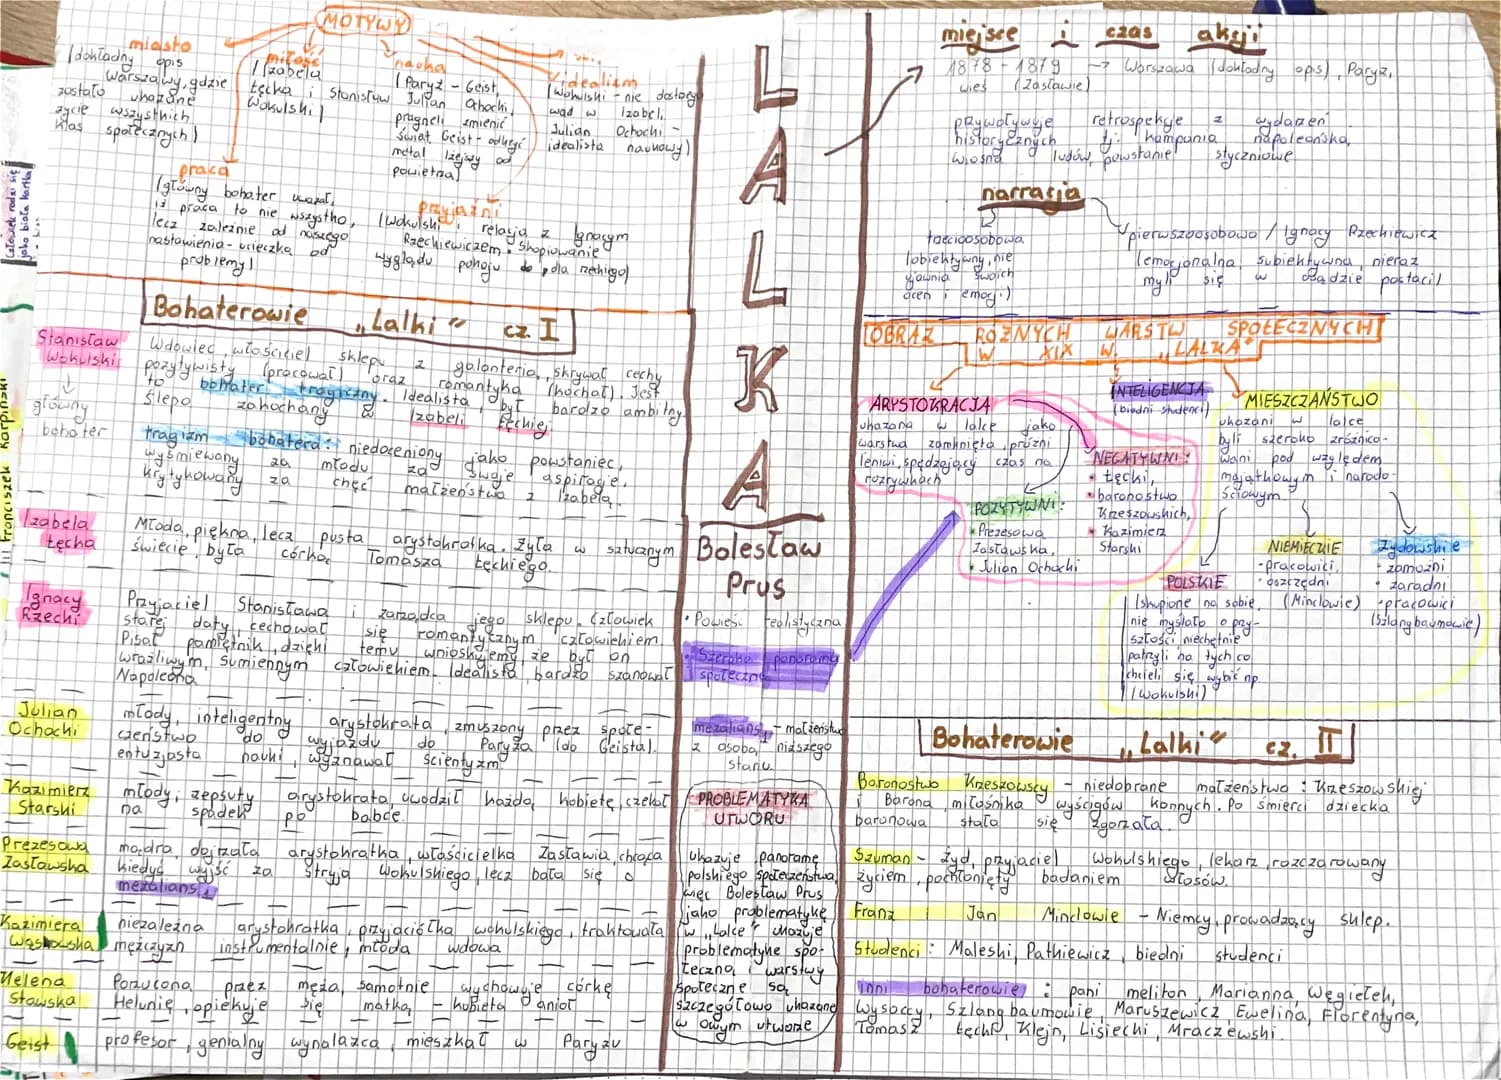 MOTYWY
miasto
(dokładny opis
Warszawy, gdzie
zostało ukazane
życie wszystkich
klas społecznych)
miłość
(Izabela
Łęcka i Stanisław
Wokulski)
nauka
(Paryż - Geist,
Julian Ochocki,
pragneli zmienić
świat, Geist - odkrył
metal lżejszy od
powietrza)
idealizm
(Wokulski - nie dostrzega
wad w Izabeli,
Julian Ochocki -
idealista naukowy)
praca
(główny bohater uważał,
iż praca to nie wszystko,
lecz zależnie od naszego
nastawienia - ucieczka od
problemy)
przyjaźni
(Wokulski i relacja z Ignacym
Rzeckiewiczem. Skopiowanie
wyglądu pokoju dla rzeckiego)
Bohaterowie „Lalki" cz. I
Stanisław
Wokulski
główny
bohater
Wdowiec, właściciel sklepu z galanterią, skrywał cechy
pozytywisty (pracował) oraz romantyka (kochał). Jest
to bohater tragiczny. Idealista, był bardzo ambitny
Ślepo zakochany w Izabeli Łęckiej
tragizm bohatera: niedoceniony jako powstaniec,
wyśmiewany za młodu za swoje aspiracje,
krytykowany za chęć małżeństwa z Izabelą
Izabela
Łęcka
Młoda, piękna, lecz pusta arystokratka. Żyła w sztucznym
świecie, była córką Tomasza Łęckiego.
Ignacy
Rzecki
Przyjaciel Stanisława i zarządca jego sklepu. Człowiek
starej daty, cechował się romantycznym człowiekiem.
Pisał pamiętnik, dzięki temu wnioskujemy, że był on
wrażliwym, sumiennym człowiekiem. Idealista, bardzo szanował
Napoleona
Julian
Ochocki
młody, inteligentny arystokrata, zmuszony przez społe-
czeństwo do wyjazdu do Paryża (do Geista).
entuzjasta nauki, wyznawał scientyzm
Kazimierz
Starski
młody, zepsuty arystokrata, uwodził każdą kobietę, czekał
na spadek po babce.
Prezesowa
Zasławska
mądra, dojrzała arystokratka, właścicielka Zasławia, chcąca
kiedyś wyjść za stryja Wokulskiego, lecz bała się o
mezalians
Kazimiera
Wąsowska
niezależna arystokratka, przyjaciółka Wokulskiego, traktowała
mężczyzn instrumentalnie, młoda wdowa
Helena
Stawska
Porzucona przez męża, samotnie wychowuje córkę
Helunię, opiekuje się matką - kobieta anioł
Geist
profesor, genialny wynalazca, mieszkał w Paryżu
człowiek rodzi się
jako biała kartka
III Franciszek Karpiński
LALKA
Bolesław
Prus
• Powieść realistyczna
• Szeroka panorama
społeczna
mezalians - małżeństwo
z osobą niższego
stanu
PROBLEMATYKA
UTWORU
ukazuje panoramę
polskiego społeczeństwa,
więc Bolesław Prus
jako problematykę
w „Lalce" ukazuje
problematykę spo-
łeczną i warstwy
społeczne są
szczegółowo ukazane
w owym utworze
miejsce i czas akcji
1878 - 1879 → Warszawa (dokładny opis), Paryż,
wieś (Zasławie)
przywoływuje retrospekcje z wydarzeń
historycznych tj: kampania napoleońska,
wiosna ludów, powstanie styczniowe
narracja
trzecioosobowa
(obiektywny, nie
ujawnia swoich
ocen i emocji)
pierwszoosobowa / Ignacy Rzeckiewicz
(emocjonalna, subiektywna, nieraz
myli się w osądzie postaci)
OBRAZ RÓŻNYCH WARSTW SPOŁECZNYCH
W XIX W. „LALKA"
ARYSTOKRACJA
ukazana w lalce jako
warstwa zamknięta, próżni
leniwi, spędzający czas na
rozrywkach
POZYTYWNI:
• Prezesowa
Zasławska,
• Julian Ochocki
NEGATYWNI:
• Łęcki,
• baronostwo
Krzeszowskich,
• Kazimierz
Starski
INTELIGENCJA
(biedni studenci)
MIESZCZAŃSTWO
ukazani w lalce
byli szeroko zróżnico-
wani pod względem
majątkowym i narodo-
ściowym
POLSKIE
(skupione na sobie,
nie myślało o przy-
szłości, niechętnie
patrzyli na tych co
chcieli się wybić np.
(Wokulski)
NIEMIECKIE
- pracowici,
- oszczędni
(Minclowie)
Żydowskie
• zamożni
• zaradni
• pracowici
(Szlangbaumowie)
Bohaterowie „Lalki" cz. II
Baronostwo Krzeszowscy - niedobrane małżeństwo: Krzeszowskiej
i Barona, miłośnika wyścigów konnych. Po śmierci dziecka
baronowa stała się zgorzała.
Szuman - żyd, przyjaciel Wokulskiego, lekarz, rozczarowany
życiem, pochłonięty badaniem włosów.
Franz i Jan Minclowie - Niemcy, prowadzący sklep.
Studenci: Maleski, Patkiewicz, biedni studenci
inni bohaterowie: pani meliton, Marianna, Węgiełek,
Wysoccy, Szlangbaumowie, Maruszewicz, Ewelina, Florentyna,
Tomasz Łęcki, Klejn, Lisiecki, Mraczewski.